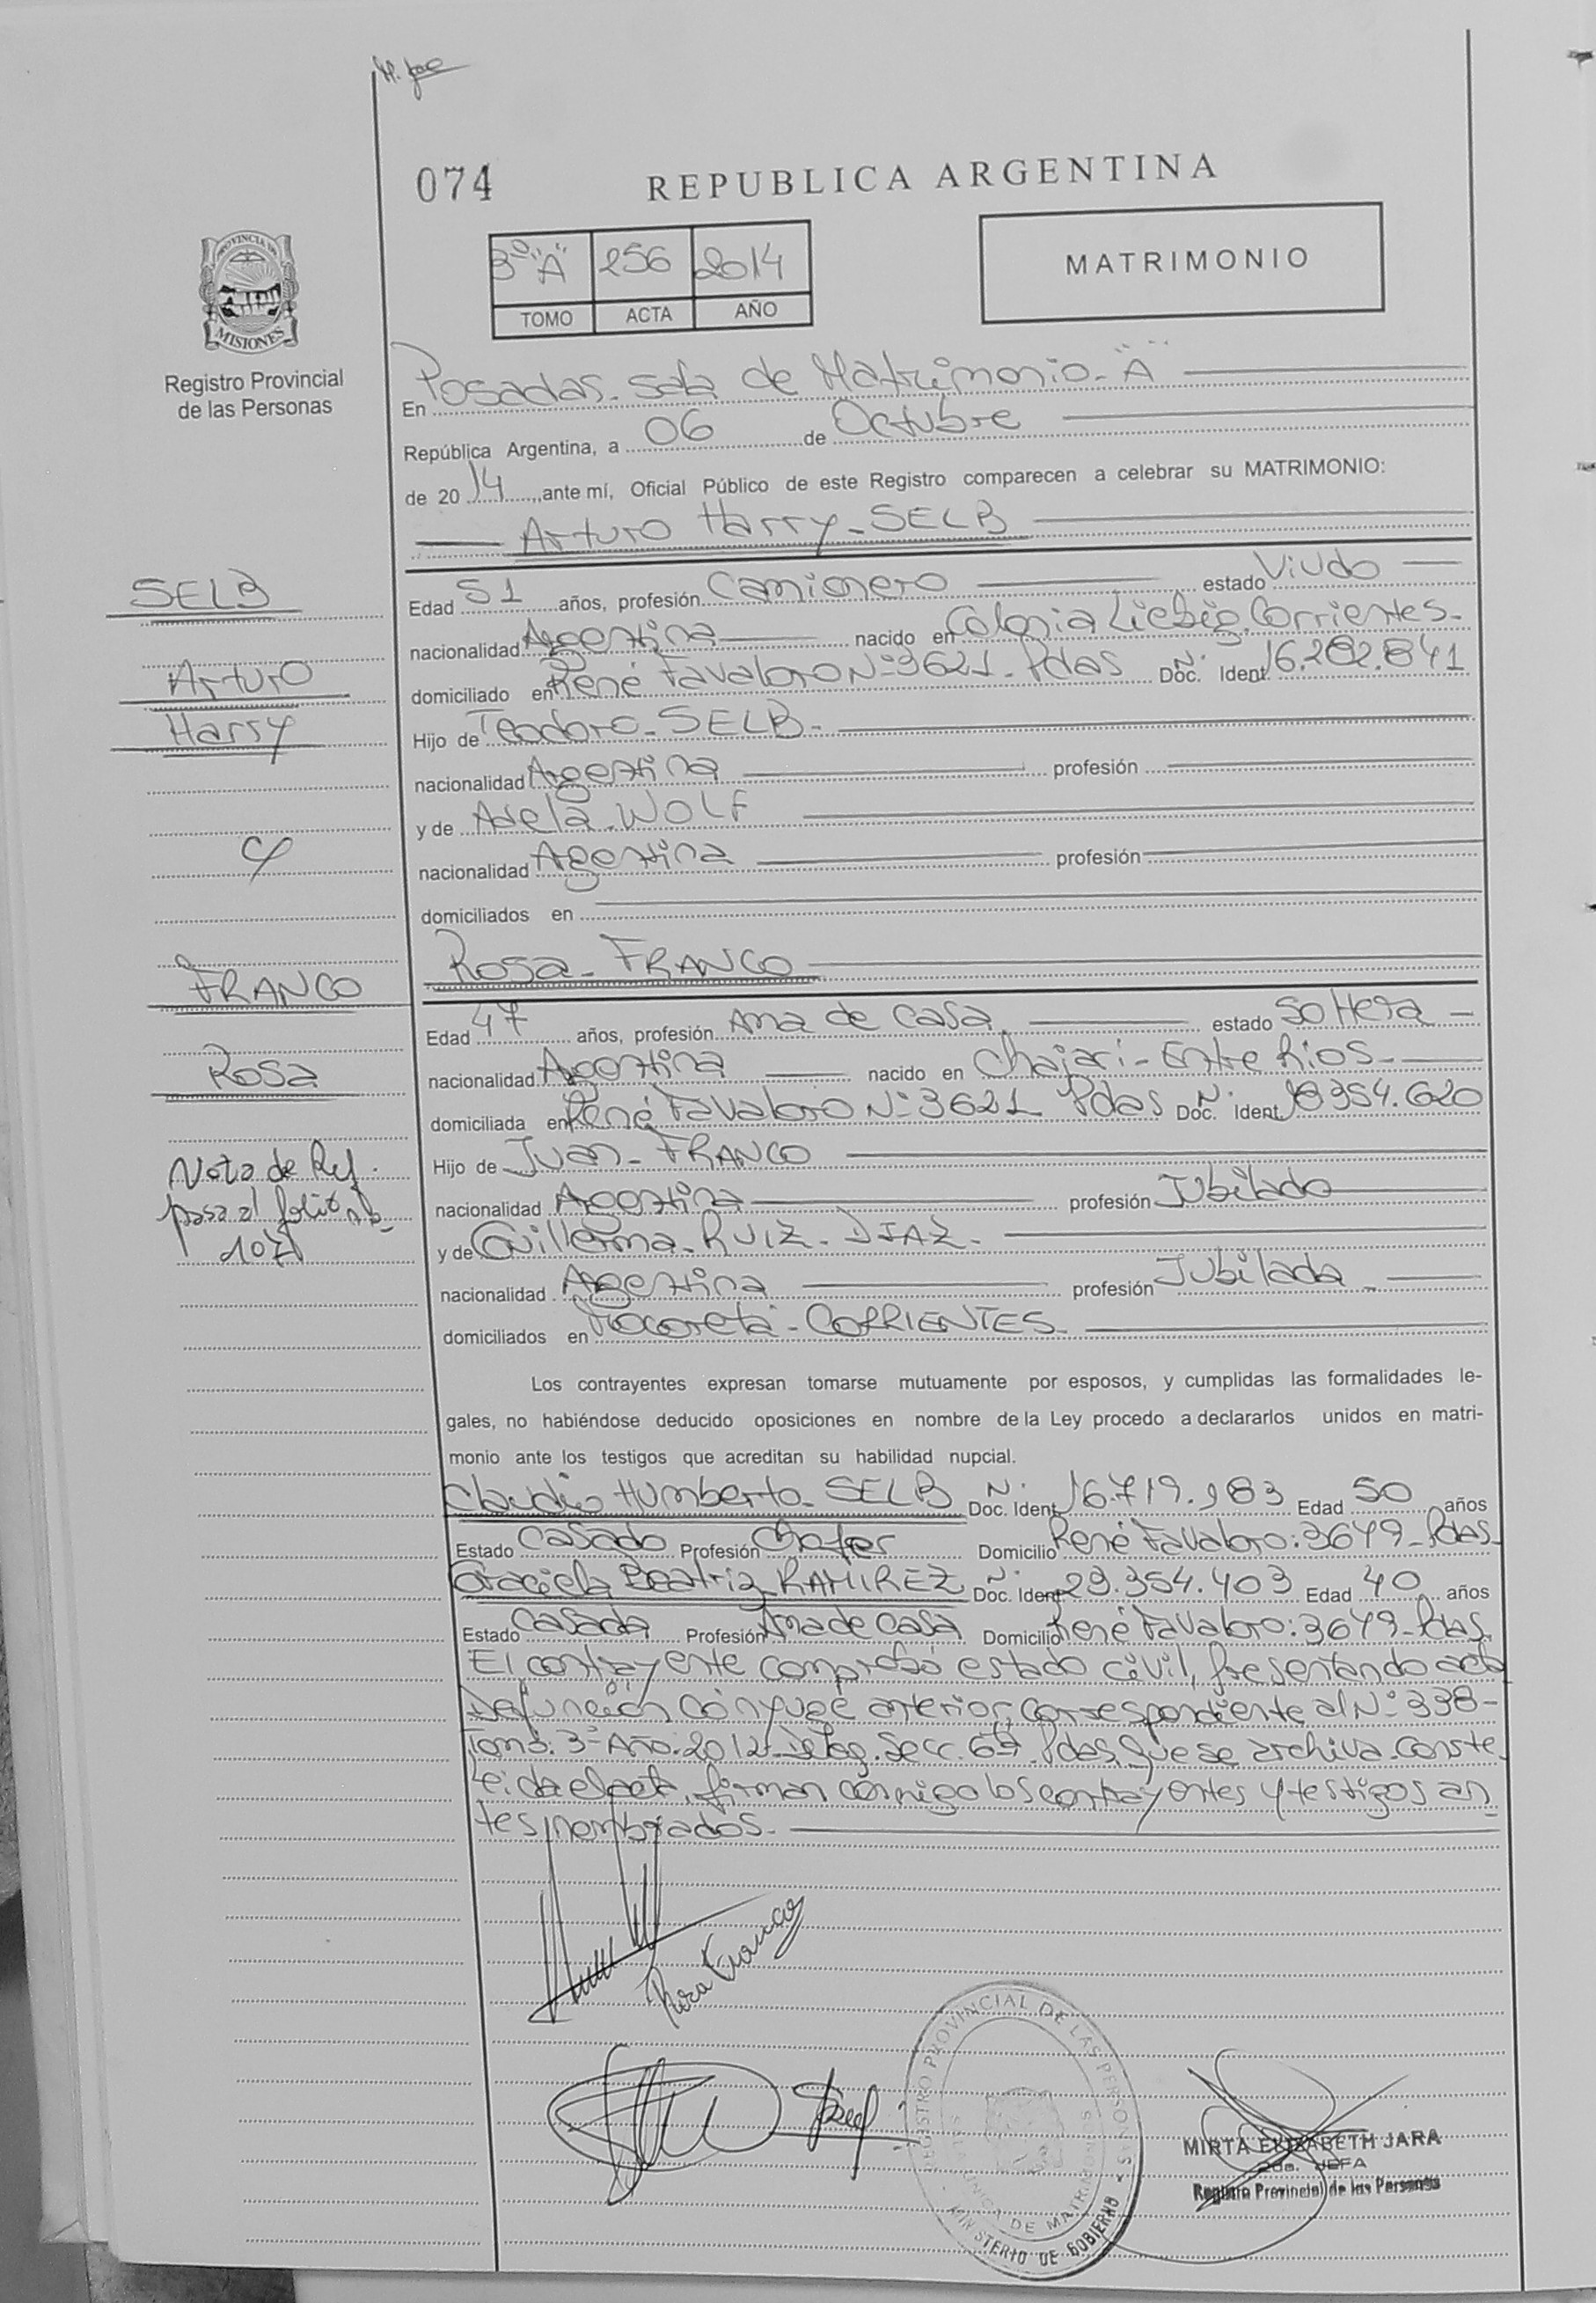 074
REPUBLICA ARGENTINA
PROVINCIA DE
MISIONES
Registro Provincial
de las Personas
3º "A" 256 2014
TOMO ACTA AÑO
MATRIMONIO
En Posadas. Sala de Matrimonio. "A"
República Argentina, a 06 de Octubre
de 2014, ante mí, Oficial Público de este Registro comparecen a celebrar su MATRIMONIO:
Arturo Harry - SELB
SELB
Arturo
Harry
Edad 51 años, profesión Camionero estado Viudo
nacionalidad Argentina nacido en Colonia Liebig, Corrientes-
domiciliado en René Favaloro Nº 3621 - Pdas Doc. Nº Ident. 16.282.841
Hijo de Teodoro - SELB -
nacionalidad Argentina profesión
y de Adela - WOLF
nacionalidad Argentina profesión
domiciliados en
y
Rosa - FRANCO
FRANCO
Rosa
Edad 47 años, profesión Ama de casa estado Soltera
nacionalidad Argentina nacido en Chajarí - Entre Ríos -
domiciliada en René Favaloro Nº 3621 Pdas Doc. Nº Ident. 18354.620
Hijo de Juan - FRANCO
nacionalidad Argentina profesión Jubilado
y de Guillerma - RUIZ - DIAZ -
nacionalidad Argentina profesión Jubilada
domiciliados en Mocoretá - CORRIENTES -
Nota de Ref.
pasa al folio nº
107
Los contrayentes expresan tomarse mutuamente por esposos, y cumplidas las formalidades le-
gales, no habiéndose deducido oposiciones en nombre de la Ley procedo a declararlos unidos en matri-
monio ante los testigos que acreditan su habilidad nupcial.
Claudio Humberto - SELB Nº Doc. Ident. 16.719.983 Edad 50 años
Estado Casado Profesión Chofer Domicilio René Favaloro: 3679 - Pdas -
Graciela Beatriz RAMIREZ Nº Doc. Ident. 29.354.403 Edad 40 años
Estado Casada Profesión Ama de casa Domicilio René Favaloro: 3679 - Pdas.
El contrayente comprobó estado civil, presentando acta
Defunción cónyuge anterior, correspondiente al Nº 338 -
Tomo: 3º Año: 2012 - Deleg. Secc. 6ta Pdas, que se archiva. Conste.
Leída el acta, firman conmigo los contrayentes y testigos an-
tes nombrados -
Rosa Franco
REGISTRO PROVINCIAL DE LAS PERSONAS
SALA UNICA DE MATRIMONIOS
MINISTERIO DE GOBIERNO
MIRTA ELIZABETH JARA
2da. JEFA
Registro Provincial de las Personas